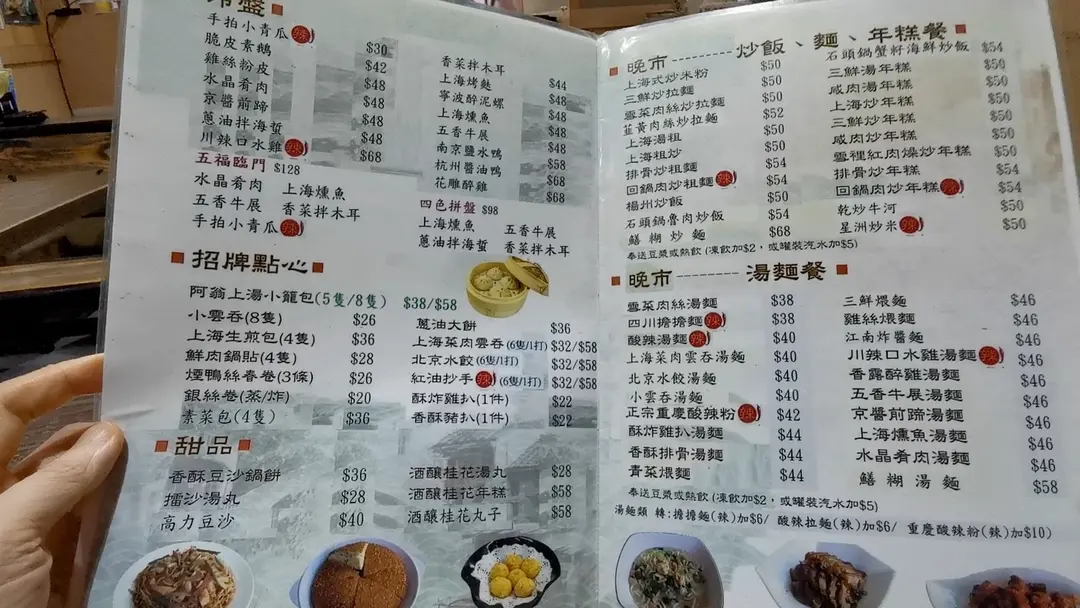 冷盤
手拍小青瓜 辣 $30
脆皮素鵝 $42
雞絲粉皮 $48
水晶肴肉 $48
京醬前蹄 $48
蔥油拌海蜇 $48
川辣口水雞 辣 $68
香菜拌木耳 $44
上海烤麩 $48
寧波醉泥螺 $48
上海燻魚 $48
五香牛展 $48
南京鹽水鴨 $58
杭州醬油鴨 $68
花雕醉雞 $68
五福臨門 $128
水晶肴肉 上海燻魚
五香牛展 香菜拌木耳
手拍小青瓜 辣
四色拼盤 $98
上海燻魚 五香牛展
蔥油拌海蜇 香菜拌木耳
招牌點心
阿翁上湯小籠包(5隻/8隻) $38/$58
小雲吞(8隻) $26
上海生煎包(4隻) $36
鮮肉鍋貼(4隻) $28
煙鴨絲春卷(3條) $26
銀絲卷(蒸/炸) $20
素菜包(4隻) $36
蔥油大餅 $36
上海菜肉雲吞(6隻/1打) $32/$58
北京水餃(6隻/1打) $32/$58
紅油抄手 辣 (6隻/1打) $32/$58
酥炸雞扒(1件) $22
香酥豬扒(1件) $22
甜品
香酥豆沙鍋餅 $36
擂沙湯丸 $28
高力豆沙 $40
酒釀桂花湯丸 $28
酒釀桂花年糕 $58
酒釀桂花丸子 $58
晚市 炒飯、麵、年糕餐
上海式炒米粉 $50
三鮮炒拉麵 $50
雪菜肉絲炒拉麵 $50
韮黃肉絲炒拉麵 $52
上海湯粗 $50
上海粗炒 $50
排骨炒粗麵 $54
回鍋肉炒粗麵 辣 $54
楊州炒飯 $50
石頭鍋魯肉炒飯 $54
鱔糊炒麵 $68
石頭鍋蟹籽海鮮炒飯 $54
三鮮湯年糕 $50
咸肉湯年糕 $50
上海炒年糕 $50
三鮮炒年糕 $50
咸肉炒年糕 $50
雪裡紅肉燥炒年糕 $50
排骨炒年糕 $54
回鍋肉炒年糕 辣 $54
乾炒牛河 $50
星洲炒米 辣 $50
奉送豆漿或熱飲(凍飲加$2,或罐裝汽水加$5)
晚市 湯麵餐
雪菜肉絲湯麵 $38
四川擔擔麵 辣 $38
酸辣湯麵 辣 $40
上海菜肉雲吞湯麵 $40
北京水餃湯麵 $40
小雲吞湯麵 $40
正宗重慶酸辣粉 辣 $42
酥炸雞扒湯麵 $44
香酥排骨湯麵 $44
青菜煨麵 $44
三鮮煨麵 $46
雞絲煨麵 $46
江南炸醬麵 $46
川辣口水雞湯麵 辣 $46
香露醉雞湯麵 $46
五香牛展湯麵 $46
京醬前蹄湯麵 $46
上海燻魚湯麵 $46
水晶肴肉湯麵 $46
鱔糊湯麵 $58
奉送豆漿或熱飲(凍飲加$2,或罐裝汽水加$5)
湯麵類 轉:擔擔麵(辣)加$6/ 酸辣拉麵(辣)加$6/ 重慶酸辣粉(辣)加$10)